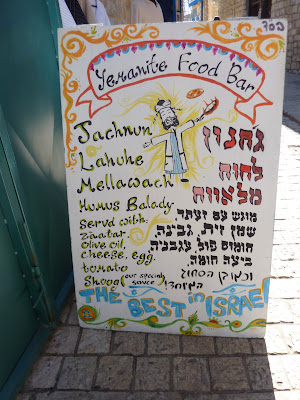 פסד
Yemanite Food Bar
Jachnun
Lahuhe
Mellawach
Humus Balady
Servd with:
Zaatar,
olive oil,
cheese, egg.
tomato
Shoog (our special sauce)
ג'חנון
לחוח
מלאווח
מוגש עם זעתר
שמן זית, גבינה
חומוס פול עגבניה
ביצה חומה,
וכמובן הסחוג
המיוחד
THE BEST in ISRAEL